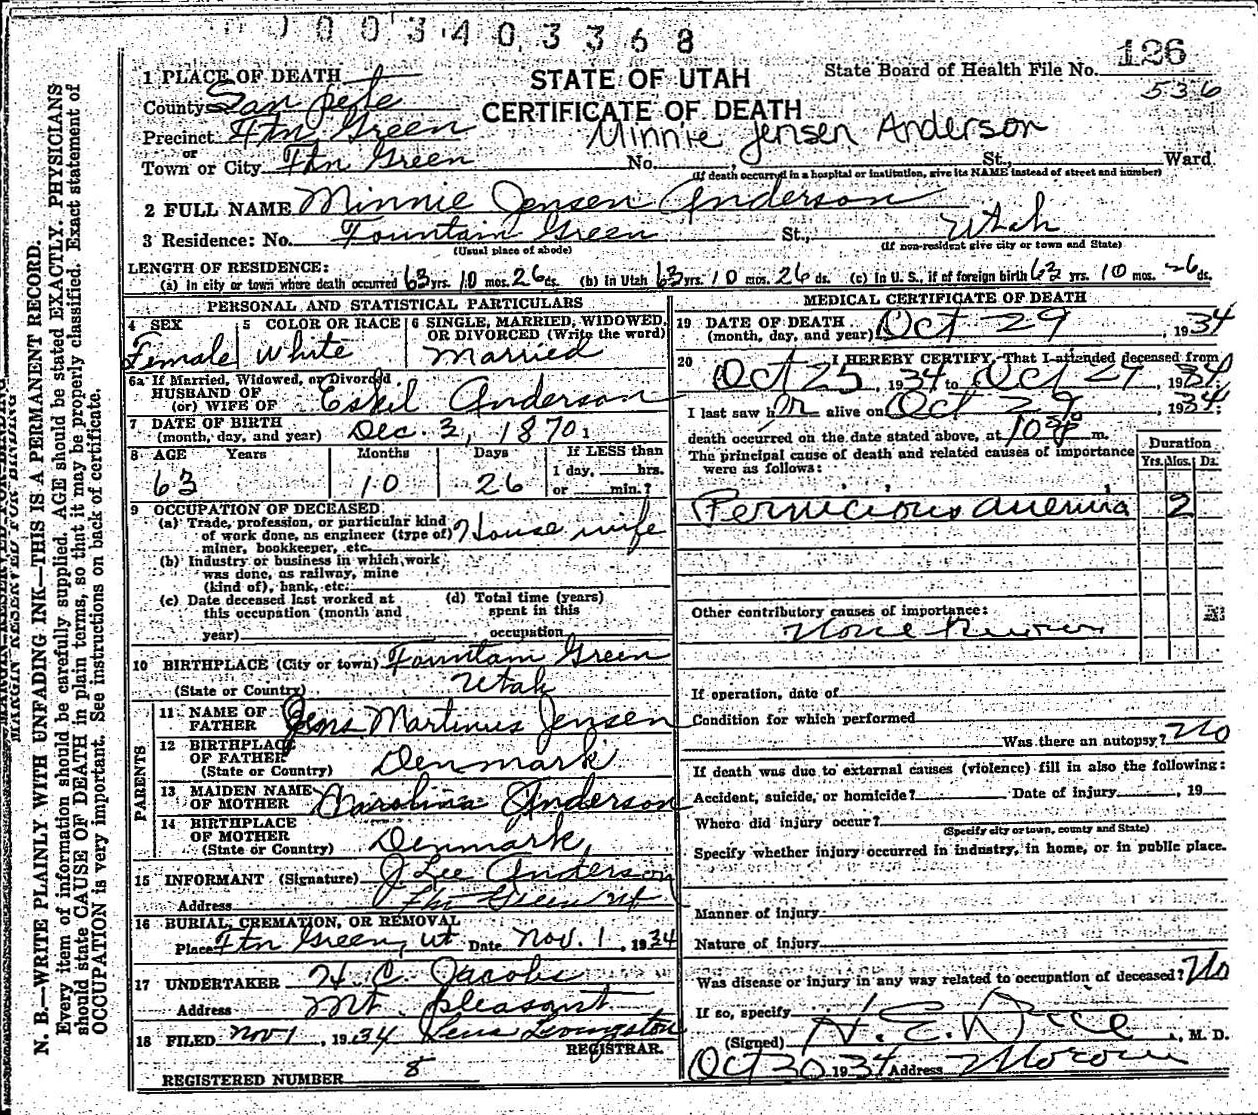 1003403368
126
536
STATE OF UTAH
CERTIFICATE OF DEATH
State Board of Health File No.
Minnie Jensen Anderson
1 PLACE OF DEATH
County San pete
Precinct Ftn Green
or
Town or City Ftn Green No. St., Ward
(If death occurred in a hospital or institution, give its NAME instead of street and number)
2 FULL NAME Minnie Jensen Anderson
3 Residence: No. Fountain Green St., Utah
(Usual place of abode) (If non-resident give city or town and State)
LENGTH OF RESIDENCE:
(a) In city or town where death occurred 63 yrs. 10 mos. 26 ds. (b) In Utah 63 yrs. 10 mos. 26 ds. (c) In U. S., if of foreign birth 63 yrs. 10 mos. 26 ds.
PERSONAL AND STATISTICAL PARTICULARS
4 SEX Female
5 COLOR OR RACE White
6 SINGLE, MARRIED, WIDOWED, OR DIVORCED (Write the word) Married
6a If Married, Widowed, or Divorced
HUSBAND OF
(or) WIFE OF Eskil Anderson
7 DATE OF BIRTH
(month, day, and year) Dec. 3, 1870
8 AGE Years Months Days If LESS than
1 day, hrs.
63 10 26 or min.?
9 OCCUPATION OF DECEASED
(a) Trade, profession, or particular kind
of work done, as engineer (type of) House wife
miner, bookkeeper, etc.
(b) Industry or business in which work
was done, as railway, mine
(kind of), bank, etc.
(c) Date deceased last worked at
this occupation (month and
year)
(d) Total time (years)
spent in this
occupation
10 BIRTHPLACE (City or town) Fountain Green
(State or Country) Utah
PARENTS
11 NAME OF
FATHER Jens Martinus Jensen
12 BIRTHPLACE
OF FATHER
(State or Country) Denmark
13 MAIDEN NAME
OF MOTHER Karolina Anderson
14 BIRTHPLACE
OF MOTHER
(State or Country) Denmark
15 INFORMANT (Signature) J Lee Anderson
Address Ftn Green Ut
16 BURIAL, CREMATION, OR REMOVAL
Place Ftn Green, Ut. Date Nov. 1, 1934
17 UNDERTAKER H. C. Jacobs
Address Mt. pleasant
18 FILED Nov 1, 1934 Lena Livingston
REGISTRAR.
REGISTERED NUMBER 8
MEDICAL CERTIFICATE OF DEATH
19 DATE OF DEATH
(month, day, and year) Oct 29, 1934
20 I HEREBY CERTIFY, That I attended deceased from
Oct 25, 1934 to Oct 29, 1934,
I last saw her alive on Oct 29, 1934;
death occurred on the date stated above, at m.
The principal cause of death and related causes of importance
were as follows:
Duration
Yrs. Mos. Ds.
Pernicious anemia 2
Other contributory causes of importance:
None Known
If operation, date of
Condition for which performed
Was there an autopsy? No
If death was due to external causes (violence) fill in also the following:
Accident, suicide, or homicide? Date of injury , 19
Where did injury occur?
(Specify city or town, county and State)
Specify whether injury occurred in industry, in home, or in public place.
Manner of injury
Nature of injury
Was disease or injury in any way related to occupation of deceased? No
If so, specify
(Signed) H. E. Dice, M. D.
Oct 30 1934 Address Moroni
MARGIN RESERVED FOR BINDING
N. B.—WRITE PLAINLY WITH UNFADING INK—THIS IS A PERMANENT RECORD.
Every item of information should be carefully supplied. AGE should be stated EXACTLY. PHYSICIANS
should state CAUSE OF DEATH in plain terms, so that it may be properly classified. Exact statement of
OCCUPATION is very important. See instructions on back of certificate.